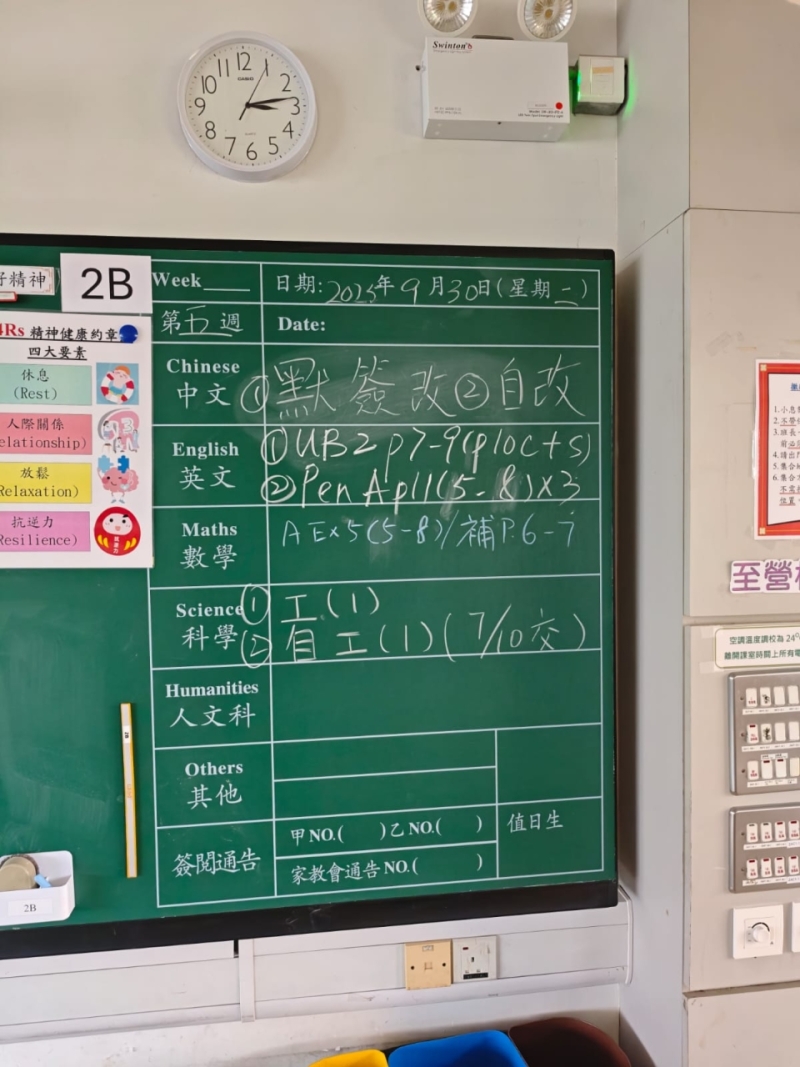 12 1 2 3 4 5 6 7 8 9 10 11
CASIO
QUARTZ
Swinton
好精神
2B
4Rs 精神健康約章
四大要素
休息
(Rest)
人際關係
Relationship)
放鬆
Relaxation)
抗逆力
Resilience)
Week
日期: 2025年9月30日(星期二)
第五週
Date:
Chinese
中文
①默簽改②自改
English
英文
①UB2 p7-9(p10C+S)
②Pen A p11(5-8)×3
Maths
數學
A Ex5(5-8)/補P.6-7
Science
科學
① 工(1)
② 自工(1)(7/10交)
Humanities
人文科
Others
其他
簽閱通告
甲NO.( )乙NO.( )
家教會通告NO.( )
值日生
2B
1.小息
2.不帶
至營
空調溫度調校為 24°
離開課室時關上所有電